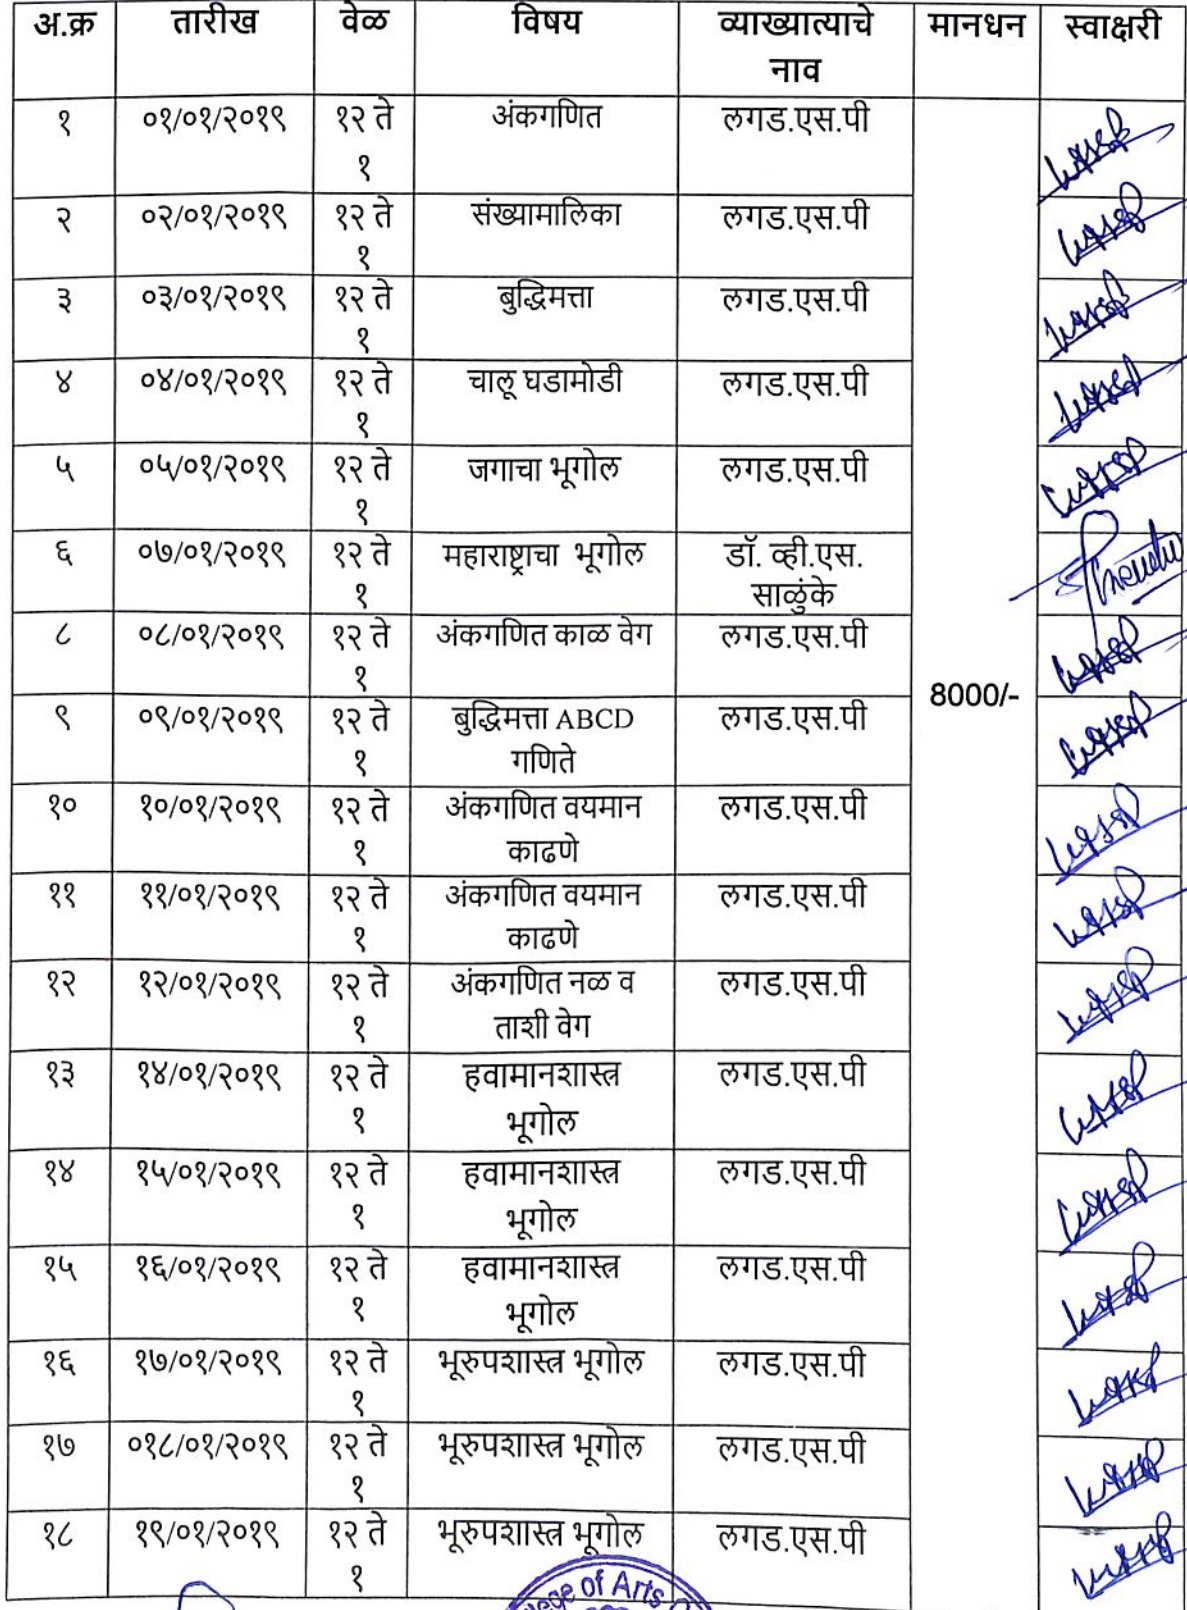 अ.क्र तारीख वेळ विषय व्याख्यात्याचे मानधन स्वाक्षरी
नाव
१ ०१/०१/२०१९ १२ ते अंकगणित लगड.एस.पी
१
२ ०२/०१/२०१९ १२ ते संख्यामालिका लगड.एस.पी
१
३ ०३/०१/२०१९ १२ ते बुद्धिमत्ता लगड.एस.पी
१
४ ०४/०१/२०१९ १२ ते चालू घडामोडी लगड.एस.पी
१
५ ०५/०१/२०१९ १२ ते जगाचा भूगोल लगड.एस.पी
१
६ ०७/०१/२०१९ १२ ते महाराष्ट्राचा भूगोल डॉ. व्ही.एस.
१ साळुंके
८ ०८/०१/२०१९ १२ ते अंकगणित काळ वेग लगड.एस.पी
१
8000/-
९ ०९/०१/२०१९ १२ ते बुद्धिमत्ता ABCD लगड.एस.पी
१ गणिते
१० १०/०१/२०१९ १२ ते अंकगणित वयमान लगड.एस.पी
१ काढणे
११ ११/०१/२०१९ १२ ते अंकगणित वयमान लगड.एस.पी
१ काढणे
१२ १२/०१/२०१९ १२ ते अंकगणित नळ व लगड.एस.पी
१ ताशी वेग
१३ १४/०१/२०१९ १२ ते हवामानशास्त्र लगड.एस.पी
१ भूगोल
१४ १५/०१/२०१९ १२ ते हवामानशास्त्र लगड.एस.पी
१ भूगोल
१५ १६/०१/२०१९ १२ ते हवामानशास्त्र लगड.एस.पी
१ भूगोल
१६ १७/०१/२०१९ १२ ते भूरुपशास्त्र भूगोल लगड.एस.पी
१
१७ ०१८/०१/२०१९ १२ ते भूरुपशास्त्र भूगोल लगड.एस.पी
१
१८ १९/०१/२०१९ १२ ते भूरुपशास्त्र भूगोल लगड.एस.पी
१
of Arts